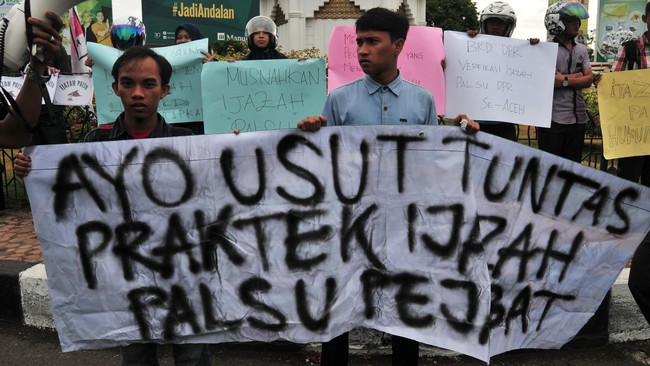 #JadiAndalan
MUSNAHKAN
IJAZAH
PALSU
BKD DPR
VERIFIKASI IJAZAH
PALSU DPR
SE-ACEH
IJAZA
AYO USUT TUNTAS
PRAKTEK IJAZAH
PALSU PEJABAT